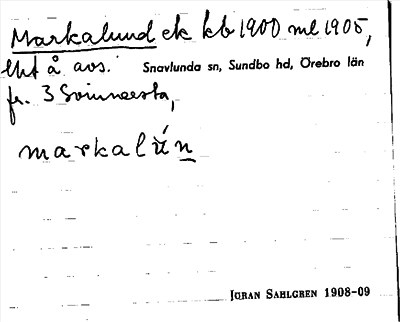 Markalund ek kb 1900 ml 1905,
lht å avs. Snavlunda sn, Sundbo hd, Örebro län
fr. 3
markalún
JÖRAN SAHLGREN 1908-09